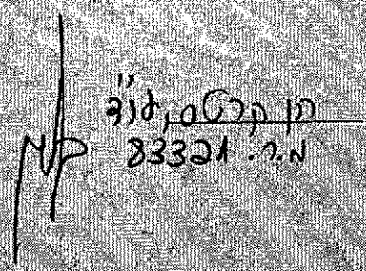 חן קרטס, עו"ד
מ.ר. 83321